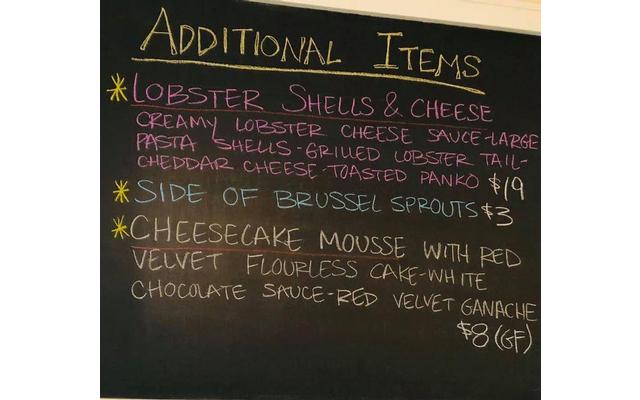 ADDITIONAL ITEMS
* LOBSTER SHELLS & CHEESE
CREAMY LOBSTER CHEESE SAUCE-LARGE
PASTA SHELLS-GRILLED LOBSTER TAIL-
CHEDDAR CHEESE-TOASTED PANKO $19
* SIDE OF BRUSSEL SPROUTS $3
* CHEESECAKE MOUSSE WITH RED
VELVET FLOURLESS CAKE-WHITE
CHOCOLATE SAUCE-RED VELVET GANACHE
$8 (GF)